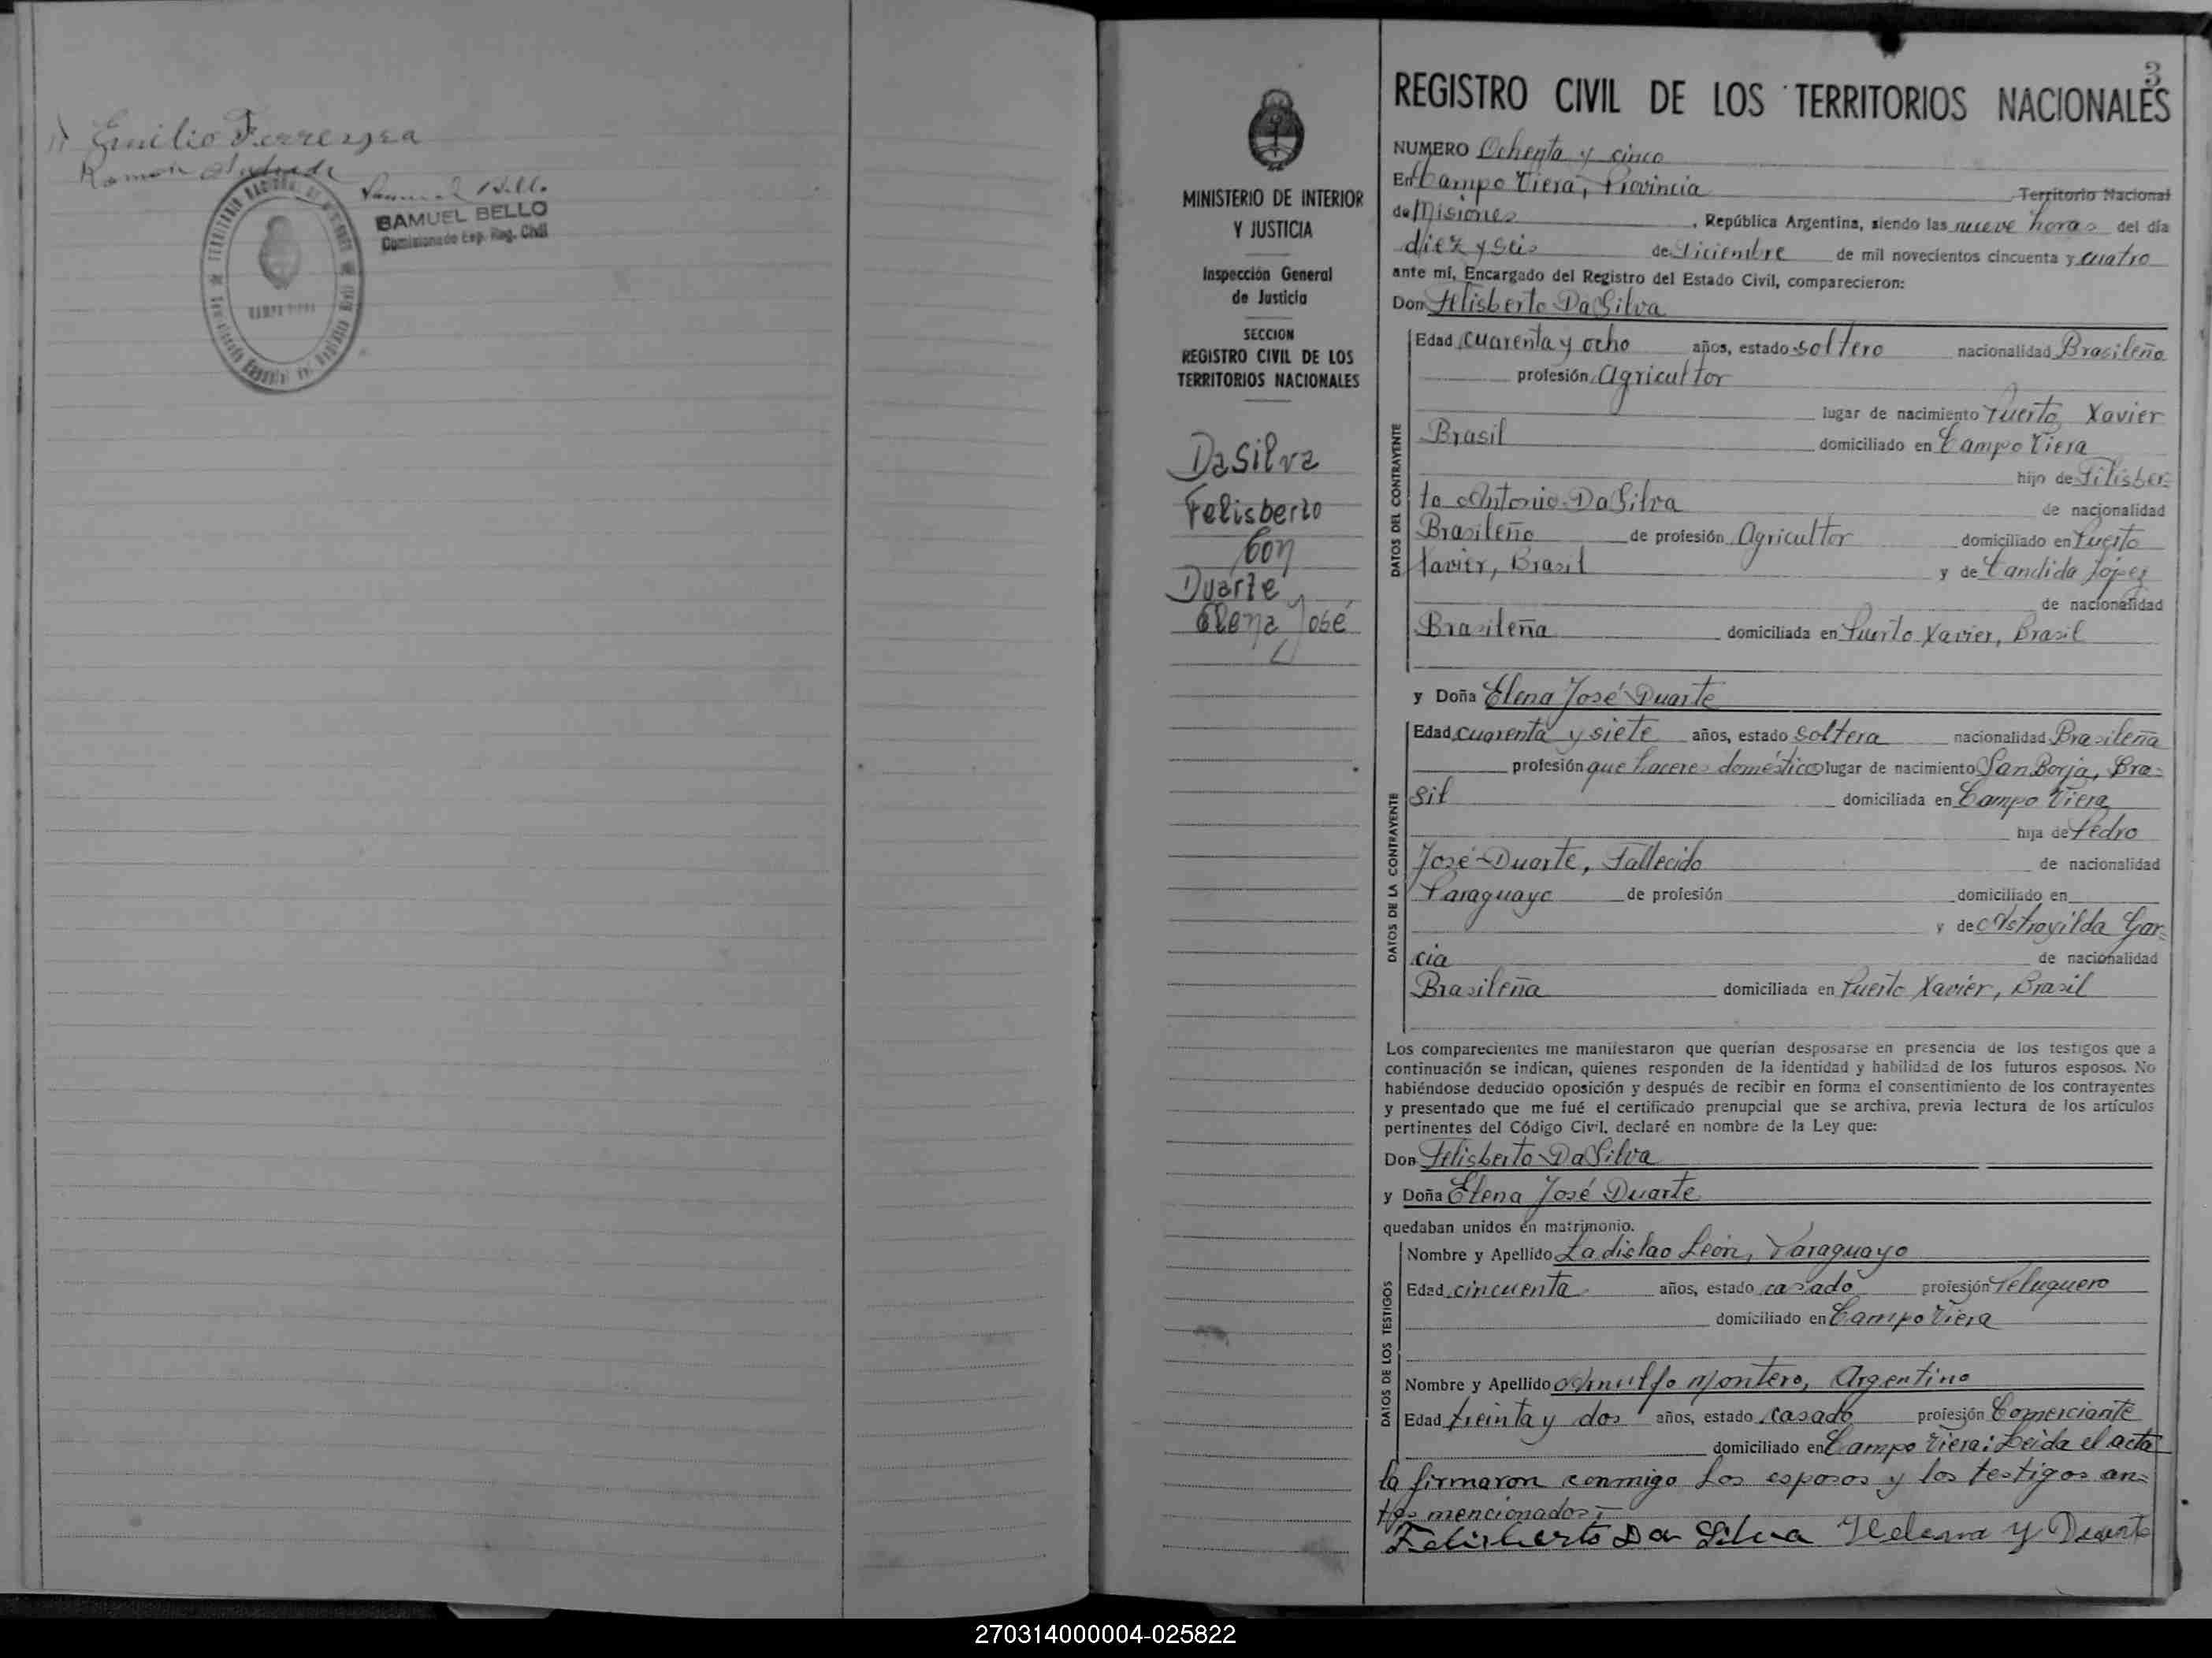 Emilio Ferreyra
Ramon
SAMUEL BELLO
Comisionado Esp. Reg. Civil
3
MINISTERIO DE INTERIOR
Y JUSTICIA
Inspección General
de Justicia
SECCION
REGISTRO CIVIL DE LOS
TERRITORIOS NACIONALES
DaSilva
Felisberto
Con
Duarte
Elena José
REGISTRO CIVIL DE LOS TERRITORIOS NACIONALES
NUMERO Ochenta y cinco
En Campo Viera, Provincia Territorio Nacional
de Misiones, República Argentina, siendo las nueve horas del día
diez y seis de Diciembre de mil novecientos cincuenta y cuatro
ante mí, Encargado del Registro del Estado Civil, comparecieron:
Don Felisberto DaSilva
DATOS DEL CONTRAYENTE
Edad cuarenta y ocho años, estado soltero nacionalidad Brasileño
profesión Agricultor
lugar de nacimiento Puerto Xavier
Brasil domiciliado en Campo Viera
hijo de Filisber=
to Antonio DaSilva de nacionalidad
Brasileño de profesión Agricultor domiciliado en Puerto
Xavier, Brasil y de Candida López
de nacionalidad
Brasileña domiciliada en Puerto Xavier, Brasil
y Doña Elena José Duarte
DATOS DE LA CONTRAYENTE
Edad cuarenta y siete años, estado soltera nacionalidad Brasileña
profesión que haceres domésticos lugar de nacimiento San Borja, Bra=
sil domiciliada en Campo Viera
hija de Pedro
José Duarte, Fallecido de nacionalidad
Paraguayo de profesión domiciliado en
y de Astrogilda Gar=
cia de nacionalidad
Brasileña domiciliada en Puerto Xavier, Brasil
Los comparecientes me manifestaron que querían desposarse en presencia de los testigos que a
continuación se indican, quienes responden de la identidad y habilidad de los futuros esposos. No
habiéndose deducido oposición y después de recibir en forma el consentimiento de los contrayentes
y presentado que me fué el certificado prenupcial que se archiva, previa lectura de los artículos
pertinentes del Código Civil, declaré en nombre de la Ley que:
Don Felisberto DaSilva
y Doña Elena José Duarte
quedaban unidos en matrimonio.
DATOS DE LOS TESTIGOS
Nombre y Apellido Ladislao León, Paraguayo
Edad cincuenta años, estado casado profesión Peluquero
domiciliado en Campo Viera
Nombre y Apellido Arnulfo Montero, Argentino
Edad treinta y dos años, estado casado profesión Comerciante
domiciliado en Campo Viera: Leida el acta
la firmaron conmigo los esposos y los testigos an=
tes mencionados;
Felisberto Da Silva Helena Y Duarte
270314000004-025822